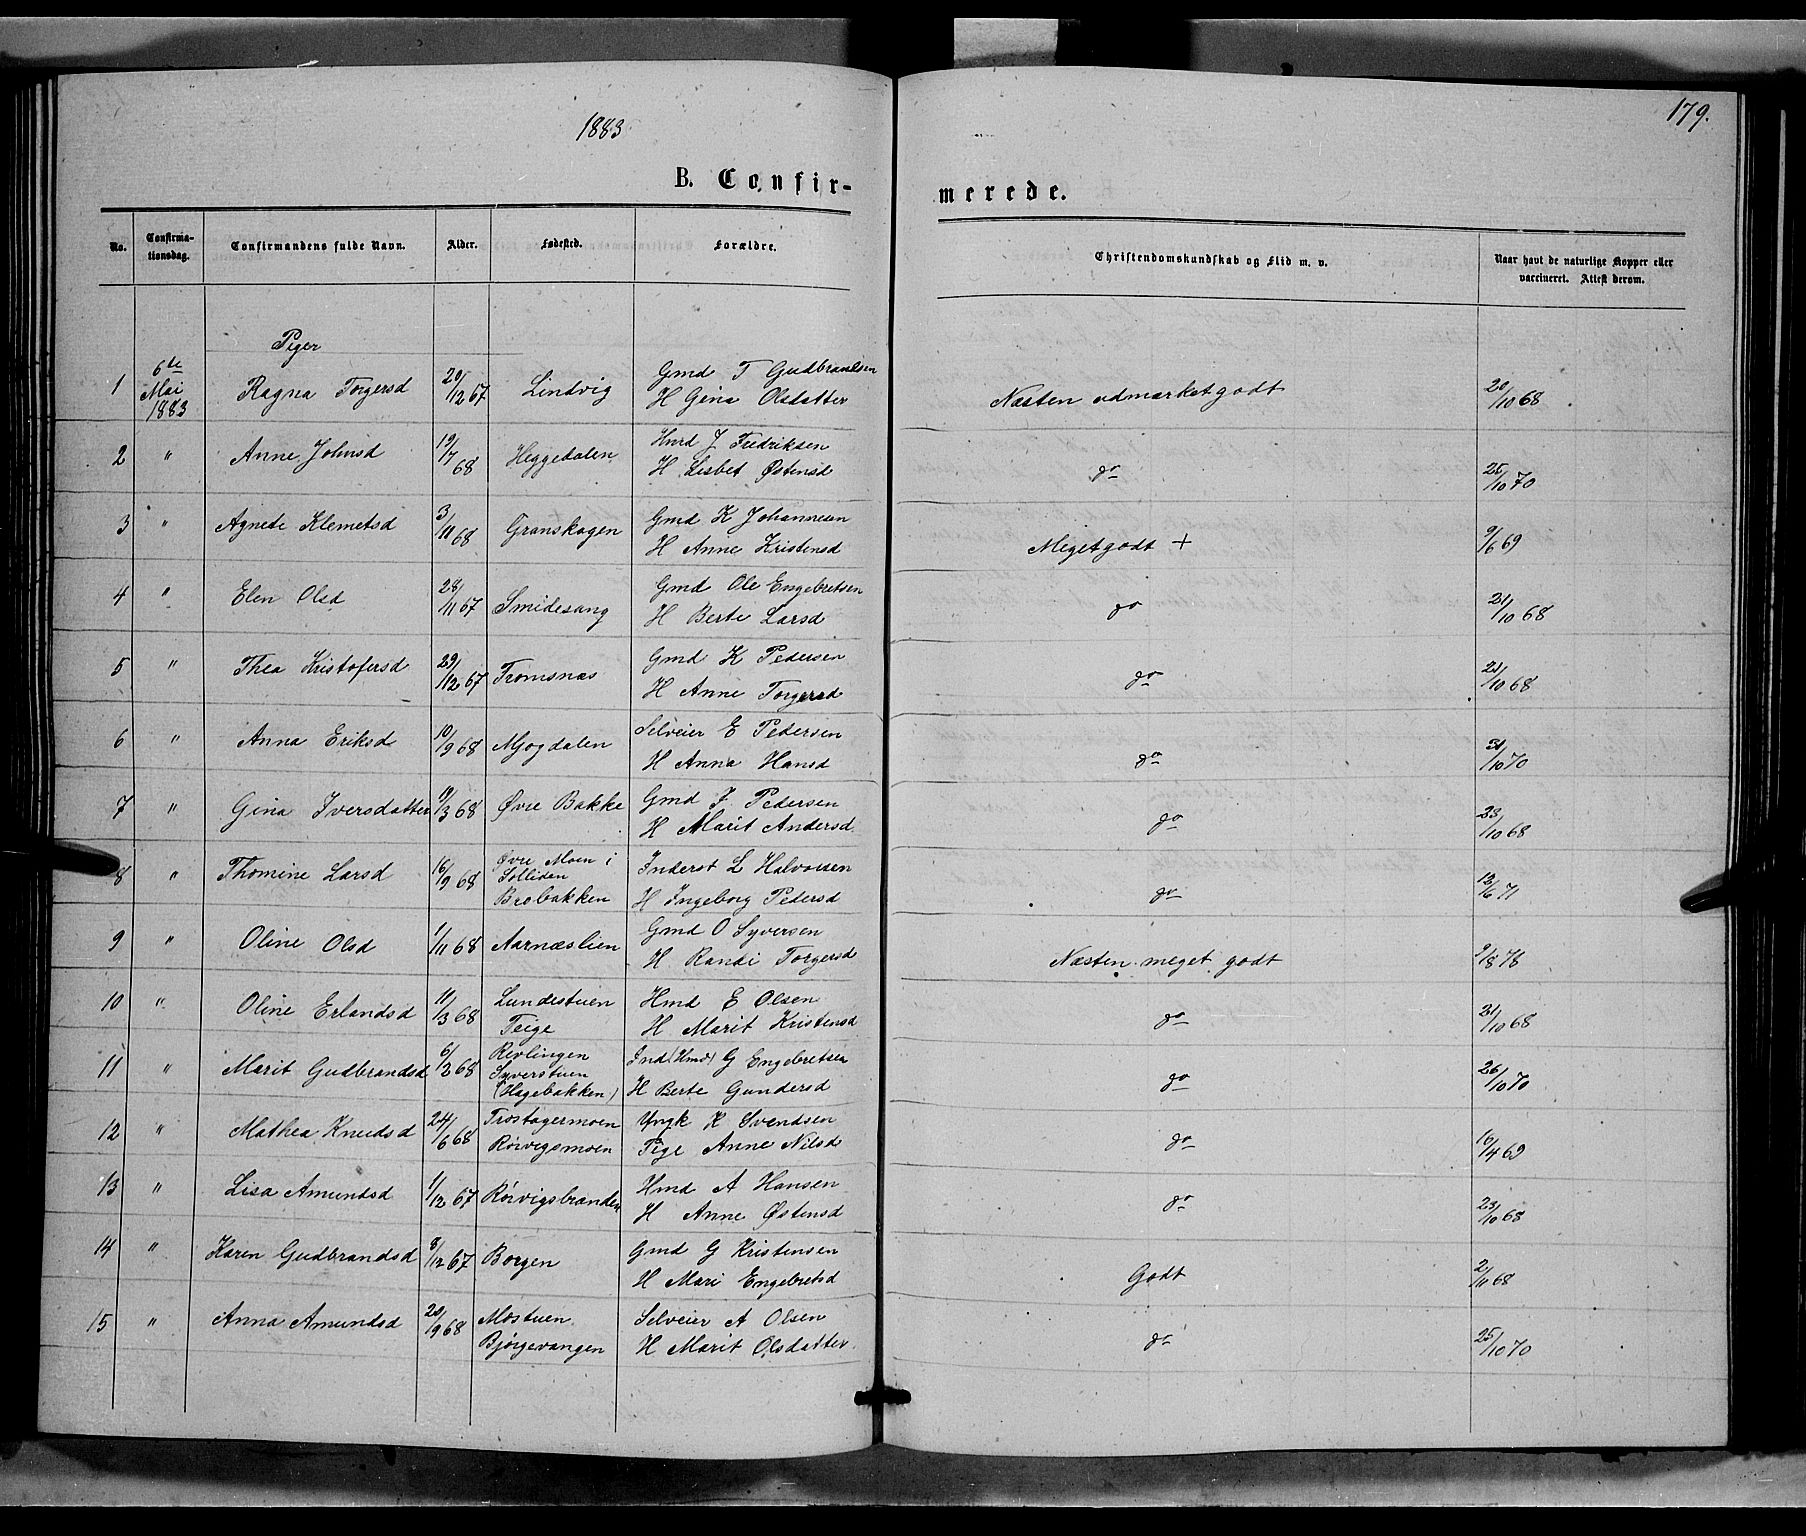 1883
179.
B. Confir-
merede.
No.
Confirma-
tionsdag.
Confirmandens fulde Navn.
Alder.
Fødested.
Forældre.
Christendomskundskab og Flid m. v.
Naar havt de naturlige Kopper eller
vaccineret. Attest derom.
Piger
1 6te Mai 1883 Ragna Torgersd 20/12 67 Lindvig Gmd T Gudbrandsen
H Gina Olsdatter Næsten udmærket godt 20/10 68
2 " Anne Johnsd 19/7 68 Heggedalen Hmd J Fredriksen
H Lisbet Østensd do 25/10 70
3 " Agnede Klemetsd 3/11 68 Granskogen Gmd K Johannesen
H Anne Kristensd Meget godt + 9/6 69
4 " Elen Olsd 28/11 67 Smidesang Gmd Ole Engebretsen
H Berte Larsd do 21/10 68
5 " Thea Kristofersd 29/12 67 Tromsnæs Gmd K Pedersen
H Anne Torgersd do 21/10 68
6 " Anna Eriksd 10/9 68 Mjogdalen Selveier E Pedersen
H Anna Hansd do 31/10 70
7 " Gina Iversdatter 19/3 68 Øvre Bakke Gmd I Pedersen
H Marit Andersd do 23/10 68
8 " Thomine Larsd 16/9 68 Øvre Moen i
Solliden
Brobakken Inderst L Halvorsen
H Ingeborg Pedersd do 12/6 71
9 " Oline Olsd 1/11 68 Aarnæslien Gmd O Syversen
H Randi Torgersd Næsten meget godt 9/8 76
10 " Oline Erlandsd 11/3 68 Lundestuen
Teige Hmd E Olsen
H Marit Kristensd do 31/10 68
11 " Marit Gudbrandsd 6/2 68 Revlingen
Syverstuen
(Hagebakken) Ind (Hmd) G Engebretsen
H Berte Gundersd do 26/10 70
12 " Mathea Knudsd 24/6 68 Trostagermoen
Rørvigsmoen Ungk K Svendsen
Pige Anne Nilsd do 16/4 69
13 " Lisa Amundsd 1/12 67 Rørvigsbranden Hmd A Hansen
H Anne Østensd do 23/10 68
14 " Karen Gudbrandsd 8/12 67 Borgen Gmd G Kristensen
H Mari Engebretsd Godt 2/11 68
15 " Anna Amundsd 20/9 68 Mostuen
Bjørgevangen Selveier A Olsen
H Marit Olsdatter do 25/10 70